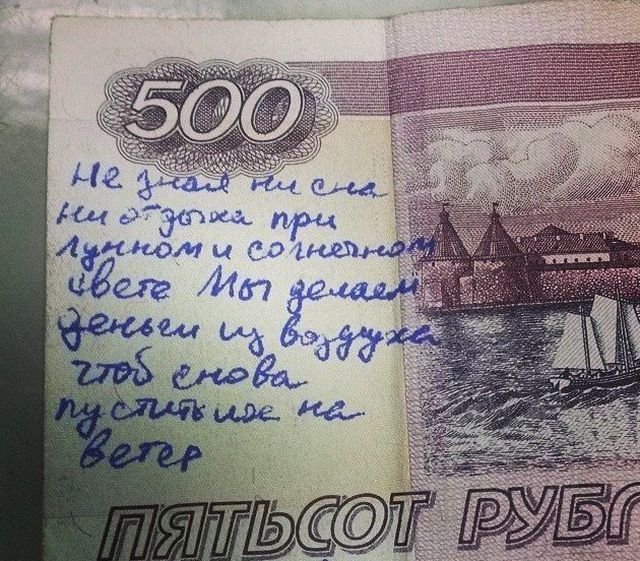 500
Не зная ни сна
ни отдыха при
лунном и солнечном
свете Мы делаем
деньги из воздуха
чтоб снова
пустить их на
ветер
ПЯТЬСОТ РУБЛ